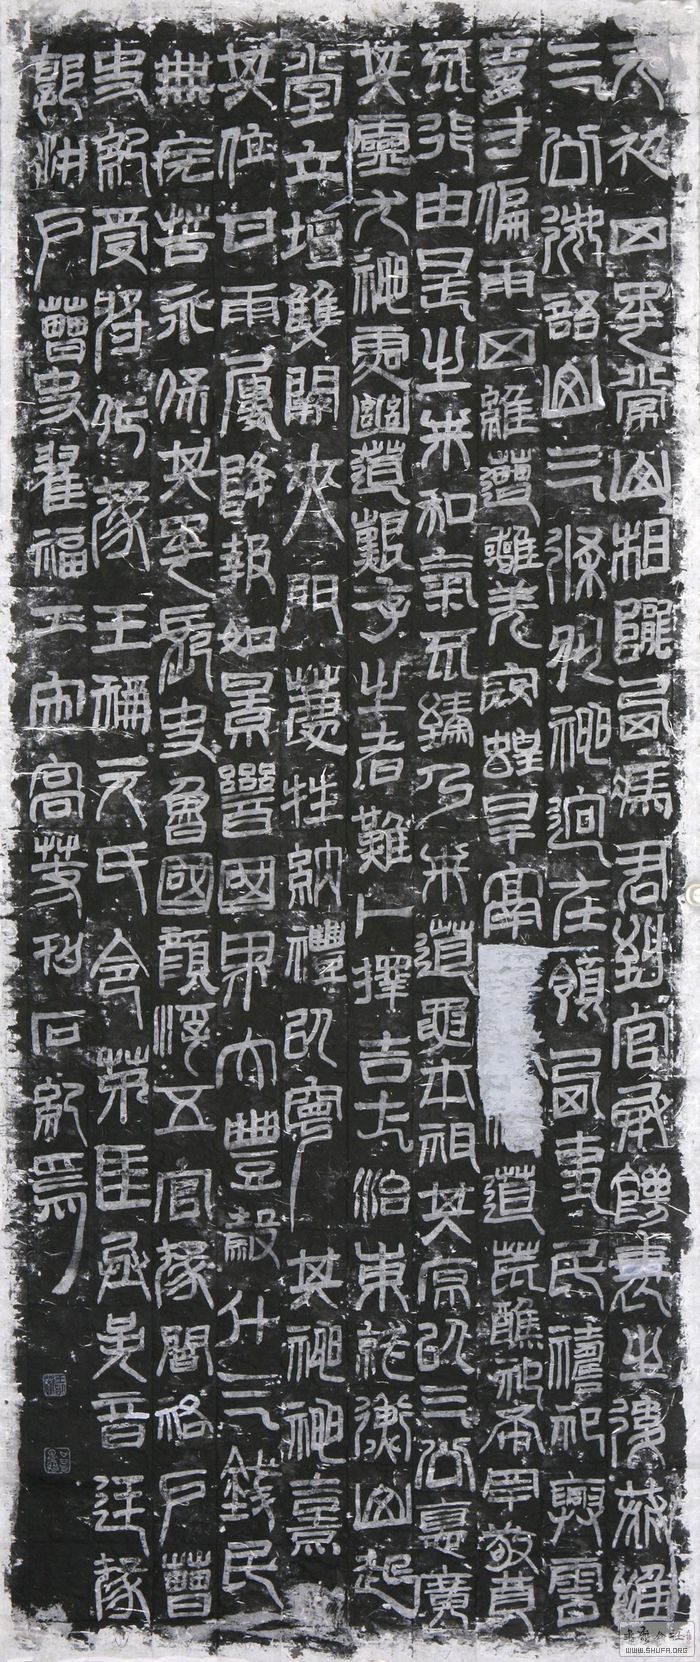 元初四年常山相隴西馮君到官承饑衰之後惟
三公御語山三條別神迥在領西吏民禱祀興雲
膚寸偏雨四維遭離羌寇蝗旱鬲道荒醮祠希罕敬奠
不行由是之來和氣不臻乃來道要本祖其原以三公德廣
其靈尤神處幽道艱存之者難卜擇吉土治東就衡山起
堂立壇雙闕夾門薦牲納禮以寧其神神熹
其位甘雨屢降報如景響國界大豐穀斗三錢民
無疾苦永保其年長史魯國顏浮五官掾閻祐戶曹
史紀受將作掾王笧元氏令茅匽丞吳音廷掾
郭洪戶曹史翟福工宋高等刊石紀焉
WWW.SHUFA.ORG